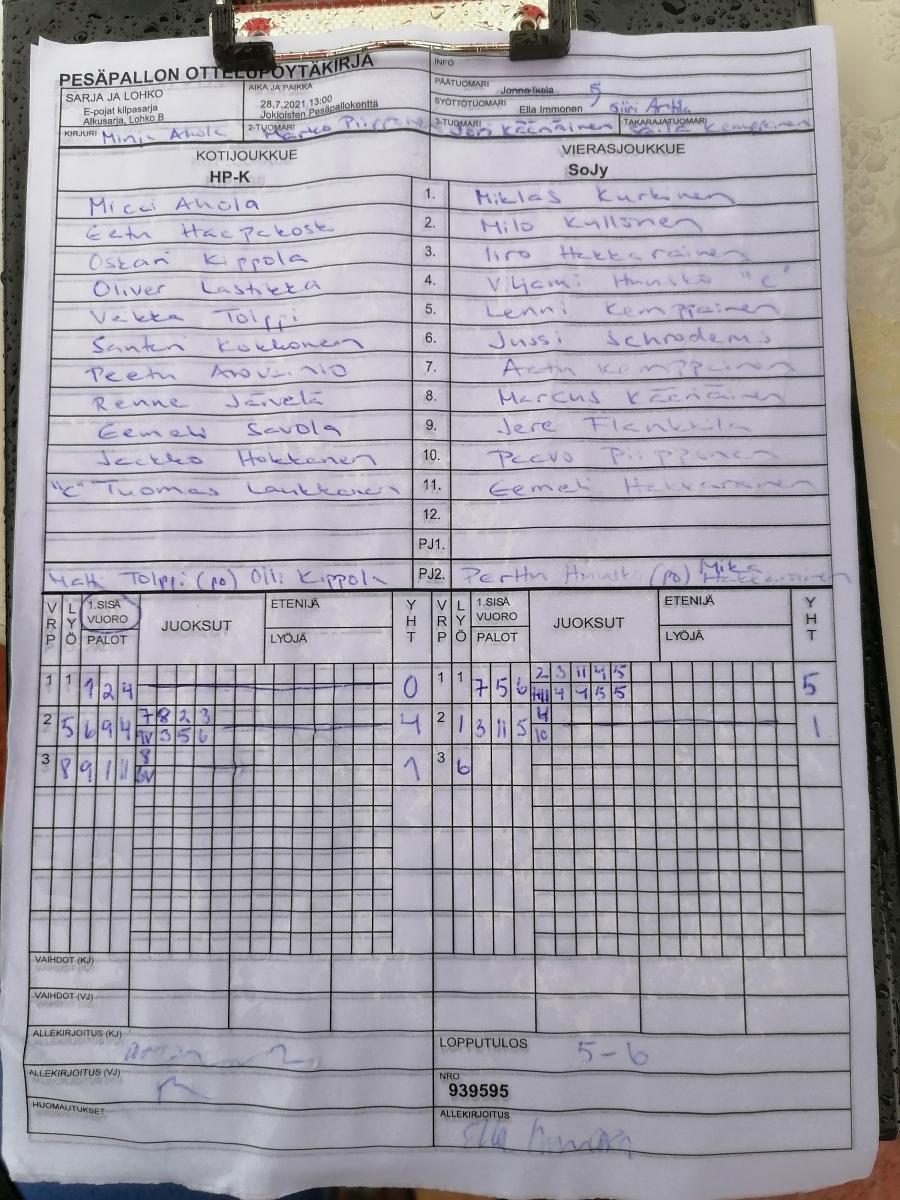 PESÄPALLON OTTELUPÖYTÄKIRJA
INFO
SARJA JA LOHKO
E-pojat kilpasarja
Alkusarja, Lohko B
AIKA JA PAIKKA
28.7.2021 13:00
Jokioisten Pesäpallokenttä
PÄÄTUOMARI Jonne Ikola
SYÖTTÖTUOMARI Ella Immonen
KIRJURI Minja Ahola
2-TUOMARI Marko Piipponen
3-TUOMARI Jari Kääriäinen
TAKARAJATUOMARI Kemppainen
KOTIJOUKKUE
HP-K
VIERASJOUKKUE
SoJy
Micci Ahola 1. Miklas Kurkinen
Eetu Haapakoski 2. Milo Kyllönen
Oskari Kippola 3. Iiro Hakkarainen
Oliver Lastikka 4. Viljami Huusko "C"
Vekka Tolppi 5. Lenni Kemppainen
Santeri Kokkonen 6. Jussi Schroderus
Peetu Arovainio 7. Aatu Kemppainen
Renne Järvelä 8. Markus Kääriäinen
Eemeli Savola 9. Jere Flankkila
Jaakko Hakkanen 10. Paavo Piipponen
"C" Tuomas Laukkanen 11. Eemeli Hakkarainen
12.
PJ1.
Matti Tolppi (po) Olli Kippola PJ2. Perttu Huusko (po) Mika Hakkarainen
VRP LYÖ 1.SISÄ VUORO PALOT JUOKSUT ETENIJÄ LYÖJÄ YHT VRP LYÖ 1.SISÄ VUORO PALOT JUOKSUT ETENIJÄ LYÖJÄ YHT
1 1 1 2 4 0 1 1 7 5 6 2 3 11 4 5 5
4 4 5 5
2 5 6 9 4 7 8 2 3 4 2 1 3 11 5 4 1
3 5 6 10
3 8 9 1 11 8 1 3 6
VAIHDOT (KJ)
VAIHDOT (VJ)
ALLEKIRJOITUS (KJ)
LOPPUTULOS 5-6
ALLEKIRJOITUS (VJ)
NRO
939595
HUOMAUTUKSET
ALLEKIRJOITUS